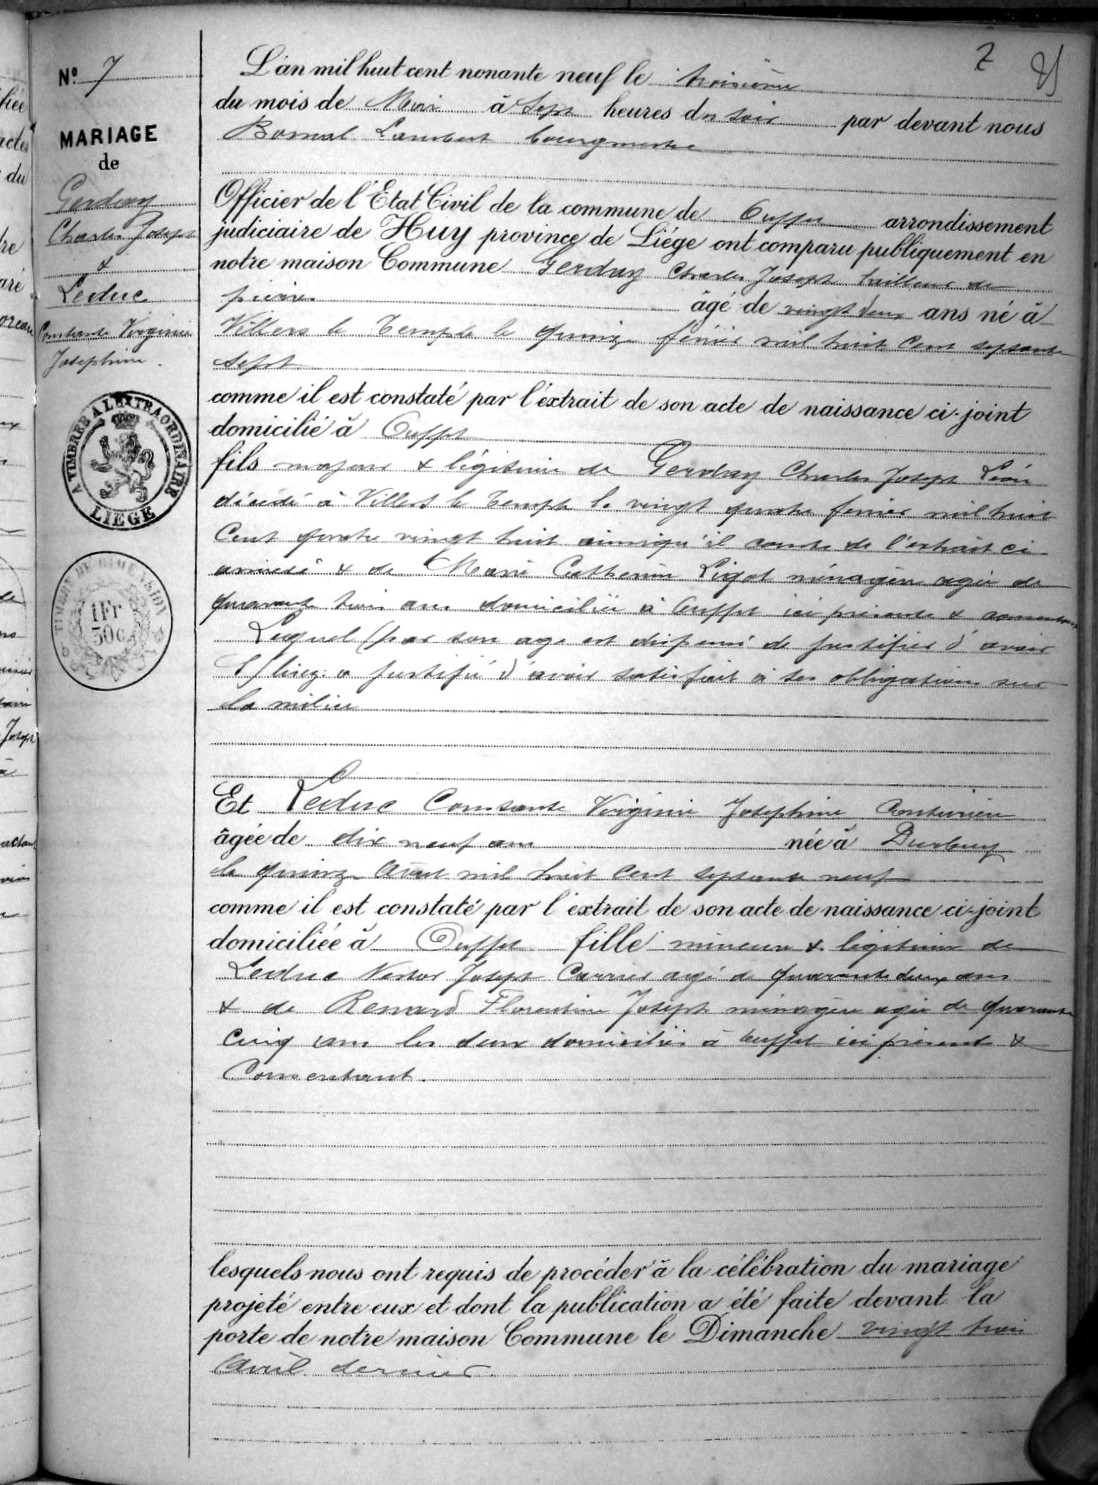 2
N° 7
MARIAGE
de
Gerday
Charles Joseph
&
Leduc
Constante Virginie
Joséphine.
A TIMBRE A L'EXTRAORDINAIRE
LIEGE
TIMBRE DE DIMENSION
1Fr
30c
L'an mil huit cent nonante neuf le troisième
du mois de Mai à Sept heures du soir par devant nous
Bomal Lambert bourgmestre
Officier de l'Etat Civil de la commune de Ouffet arrondissement
judiciaire de Huy province de Liége ont comparu publiquement en
notre maison Commune Gerday Charles Joseph tailleur de
pierres âgé de vingt deux ans né à
Villers le Temple le quinze février mil huit cent septante
sept
comme il est constaté par l'éxtrait de son acte de naissance ci-joint
domicilié à Ouffet
fils majeur & légitime de Gerday Charles Joseph Léon
décédé à Villers le Temple le vingt quatre février mil huit
cent quatre vingt huit ainsi qu'il conste de l'extrait ci
annexé & de Marie Catherine Ligot ménagère agée de
quarante trois ans domiciliée à Ouffet ici présente & consentante
Lequel (par son age est dispensé de justifier d'avoir
a justifié d'avoir satisfait à ses obligations sur
la milice
Et Leduc Constante Virginie Joséphine Couturière
âgée de dix neuf ans née à Durbuy
le quinze Août mil huit cent septante neuf
comme il est constaté par l'éxtrait de son acte de naissance ci-joint
domiciliée à Ouffet fille mineure & légitime de
Leduc Nestor Joseph Carrier agé de quarante deux ans
& de Renard Florentine Joseph ménagère agée de quarante
cinq ans les deux domiciliés à Ouffet ici présents &
Consentant.
lesquels nous ont requis de procéder à la célébration du mariage
projeté entre eux et dont la publication a été faite devant la
porte de notre maison Commune le Dimanche vingt trois
Avril dernier